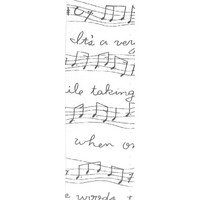 It's a ver
ile taking
when on
e woods t